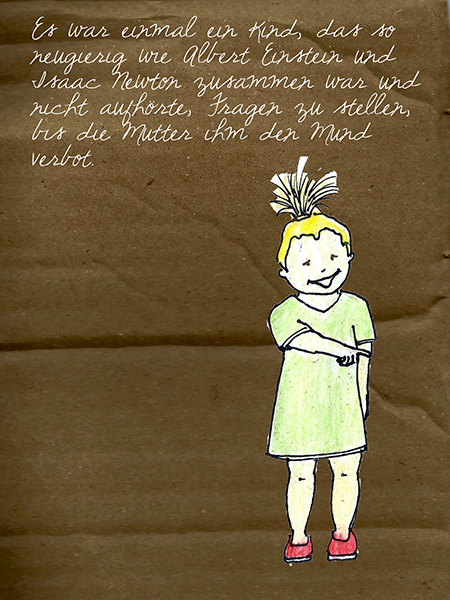 Es war einmal ein Kind, das so
neugierig wie Albert Einstein und
Isaac Newton zusammen war und
nicht aufhörte, Fragen zu stellen,
bis die Mutter ihm den Mund
verbot.